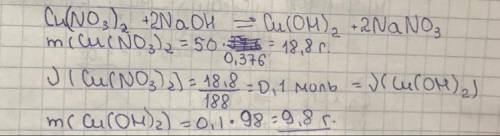 Cu(NO₃)₂ + 2NaOH ⇌ Cu(OH)₂ + 2NaNO₃
m(Cu(NO₃)₂ = 50 · = 18,8 г.
0,376
ν(Cu(NO₃)₂) = 18,8/188 = 0,1 моль = ν(Cu(OH)₂)
m(Cu(OH)₂) = 0,1 · 98 = 9,8 г.